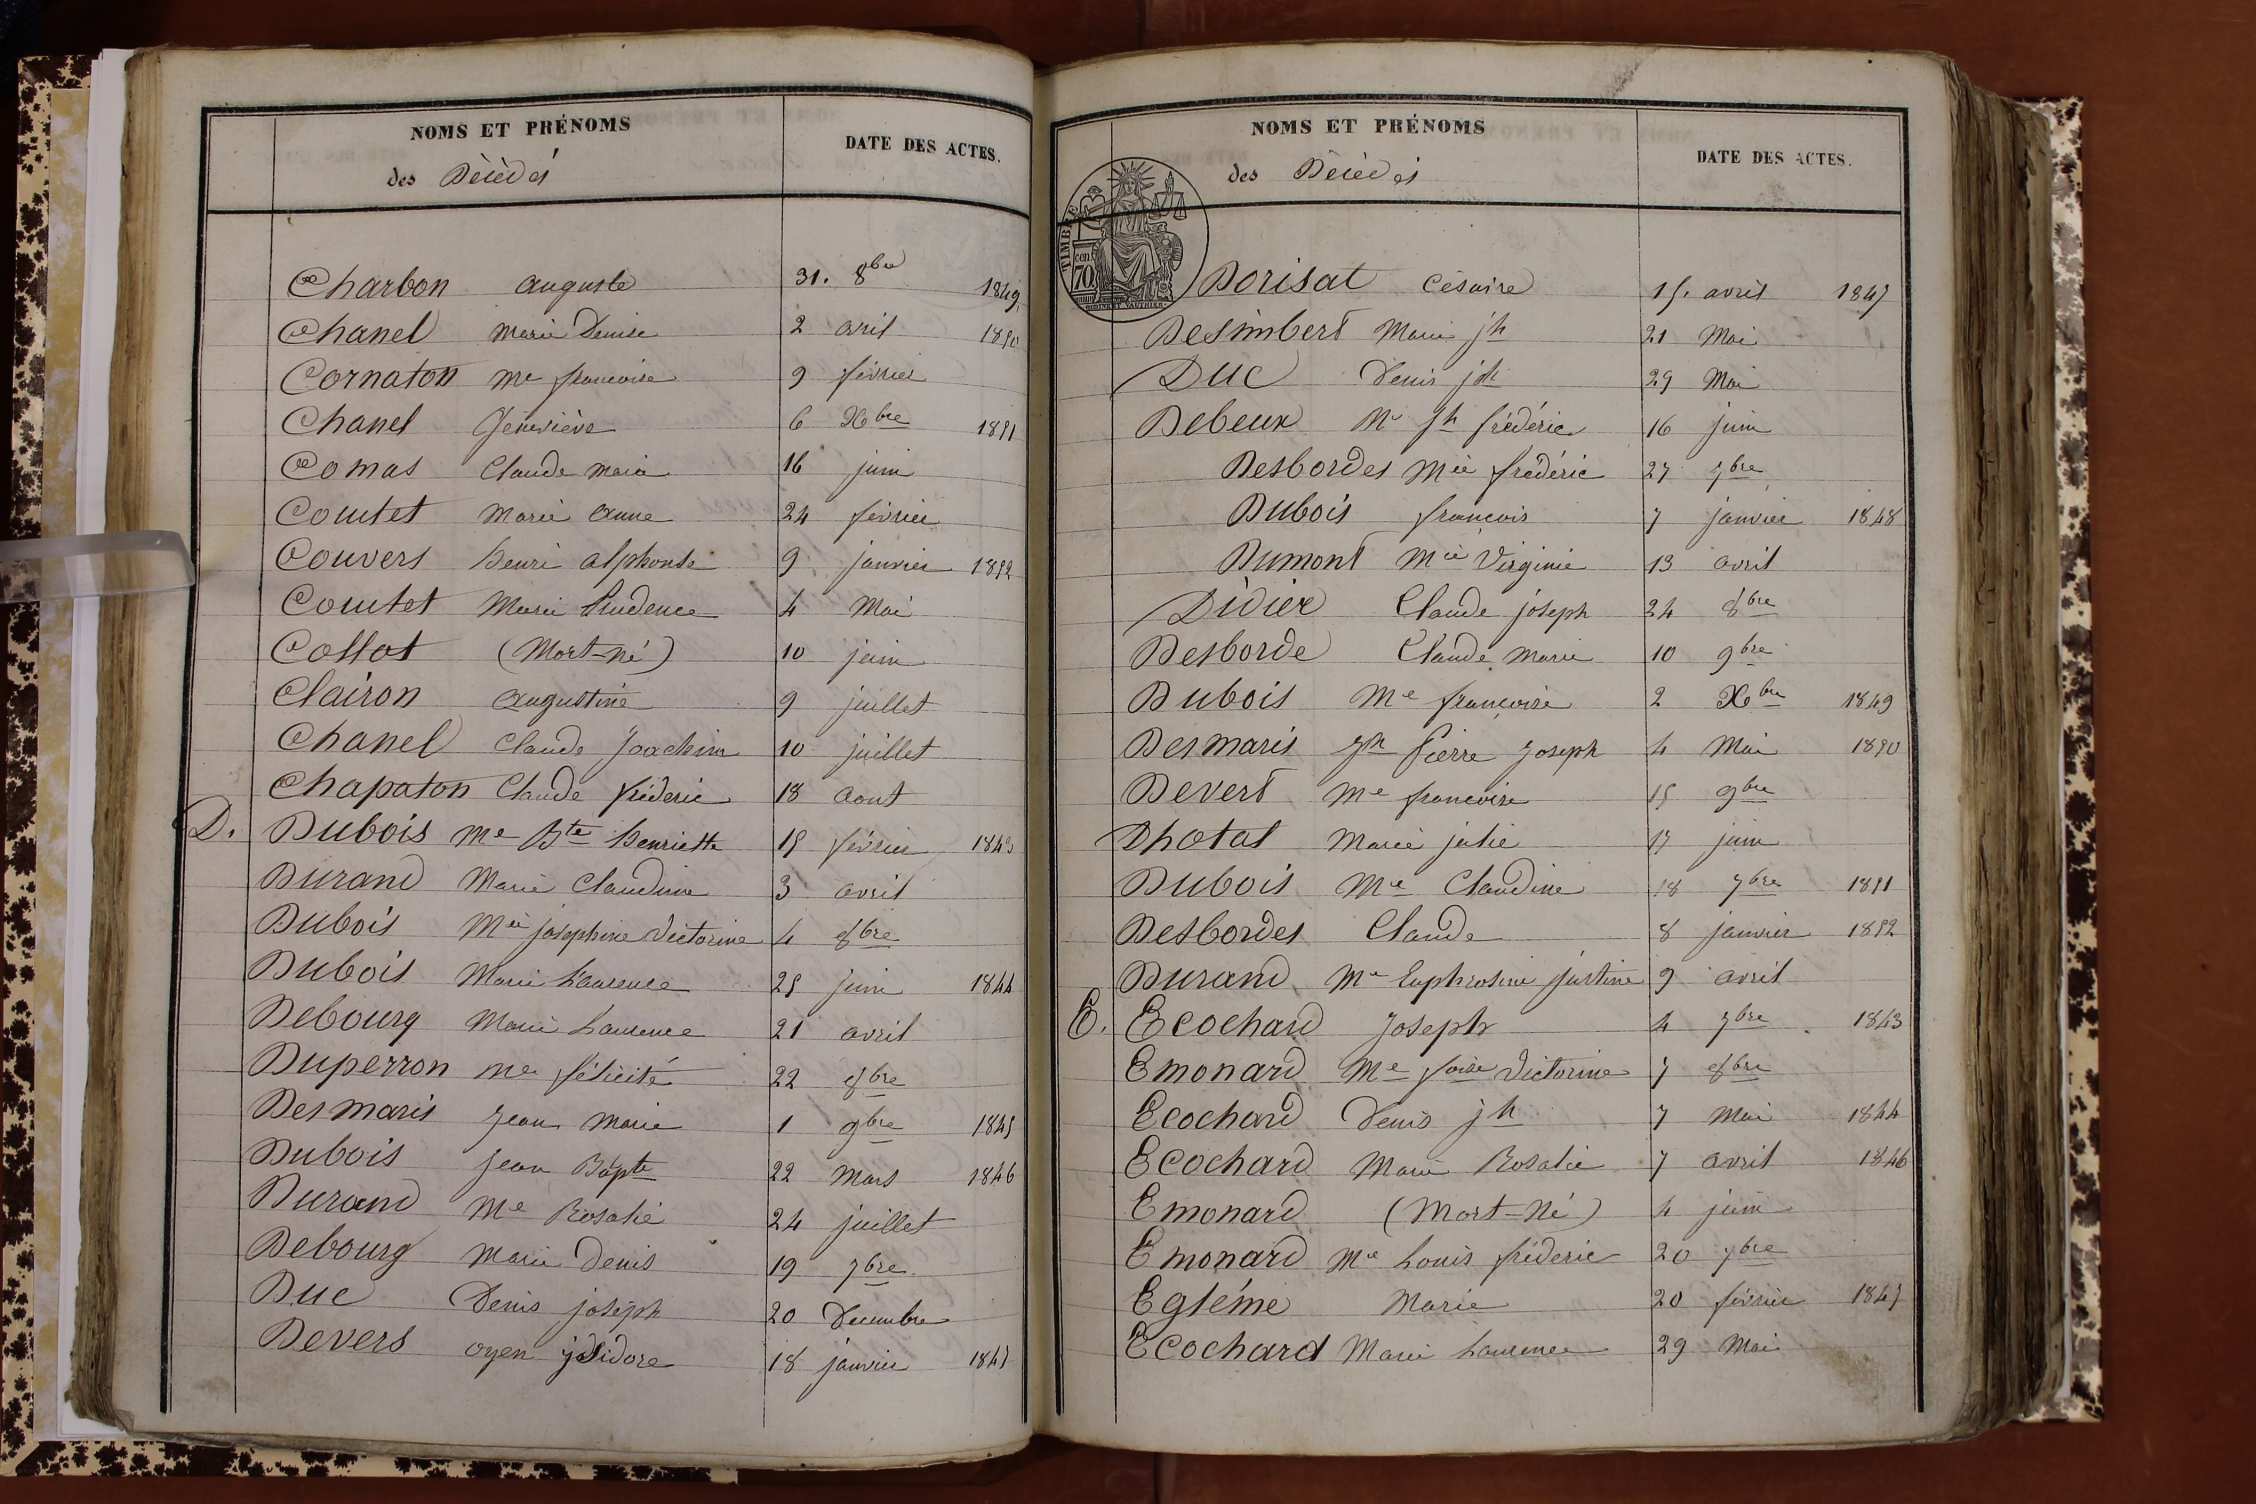 NOMS ET PRÉNOMS
des Décédés
DATE DES ACTES.
Charbon auguste 31. 8bre 1849
Chanel Marie Denise 2 avril 1850
Cornaton Me francoise 9 février
Chanel Geneviève 6 Xbre 1851
Comas Claude Marie 16 juin
Coutet Marie anne 24 février
Couvers henri alphonse 9 janvier 1852
Coutet Marie Prudence 4 Mai
Collot (Mort-né) 10 juin
Clairon augustine 9 juillet
Chanel Claude Joachim 10 juillet
Chapaton Claude fréderic 18 aout
D. Dubois Me Bte henriette 15 février 1843
Durand Marie Claudine 3 avril
Dubois Mie josephine Victorine 4 8bre
Dubois Marie Laurence 25 juin 1844
Debourg Marie Laurence 21 avril
Duperron Me félicité 22 8bre
Desmaris Jean Marie 1 9bre 1845
Dubois Jean Bapte 22 Mars 1846
Durand Me Rosalie 24 juillet
Debourg Marie Denis 19 7bre
Duc Denis joseph 20 Decembre
Devers oyen jsidore 18 janvier 1847
NOMS ET PRÉNOMS
des Décédés
DATE DES ACTES.
TIMBRE
70
Dorisat Césaire 15. avril 1847
Desimbert Marie jh 21 Mai
Duc Denis jh 29 Mai
Debeux Me Jh frédéric 16 juin
Desbordes Mie frédéric 27 7bre
Dubois francois 7 janvier 1848
Dumont Mie Virginie 13 avril
Didier Claude joseph 24 8bre
Desborde Claude Marie 10 9bre
Dubois Me francoise 2 Xbre 1849
Desmaris Jh Pierre Joseph 4 Mai 1850
Devert Me francoise 15 9bre
Dhotal Marie julie 17 juin
Dubois Mie Claudine 18 7bre 1851
Desbordes Claude 8 janvier 1852
Durand Me Euphrosine Justine 9 avril
E. Ecochard Joseph 4 7bre 1843
Emonard Me foise Victorine 7 8bre
Ecochard Denis jh 7 Mai 1844
Ecochard Marie Rosalie 7 avril 1846
Emonard (Mort-Né) 4 juin
Emonard Mie Louis fréderic 20 7bre
Egléme Marie 20 février 1847
Ecochard Marie Laurence 29 Mai